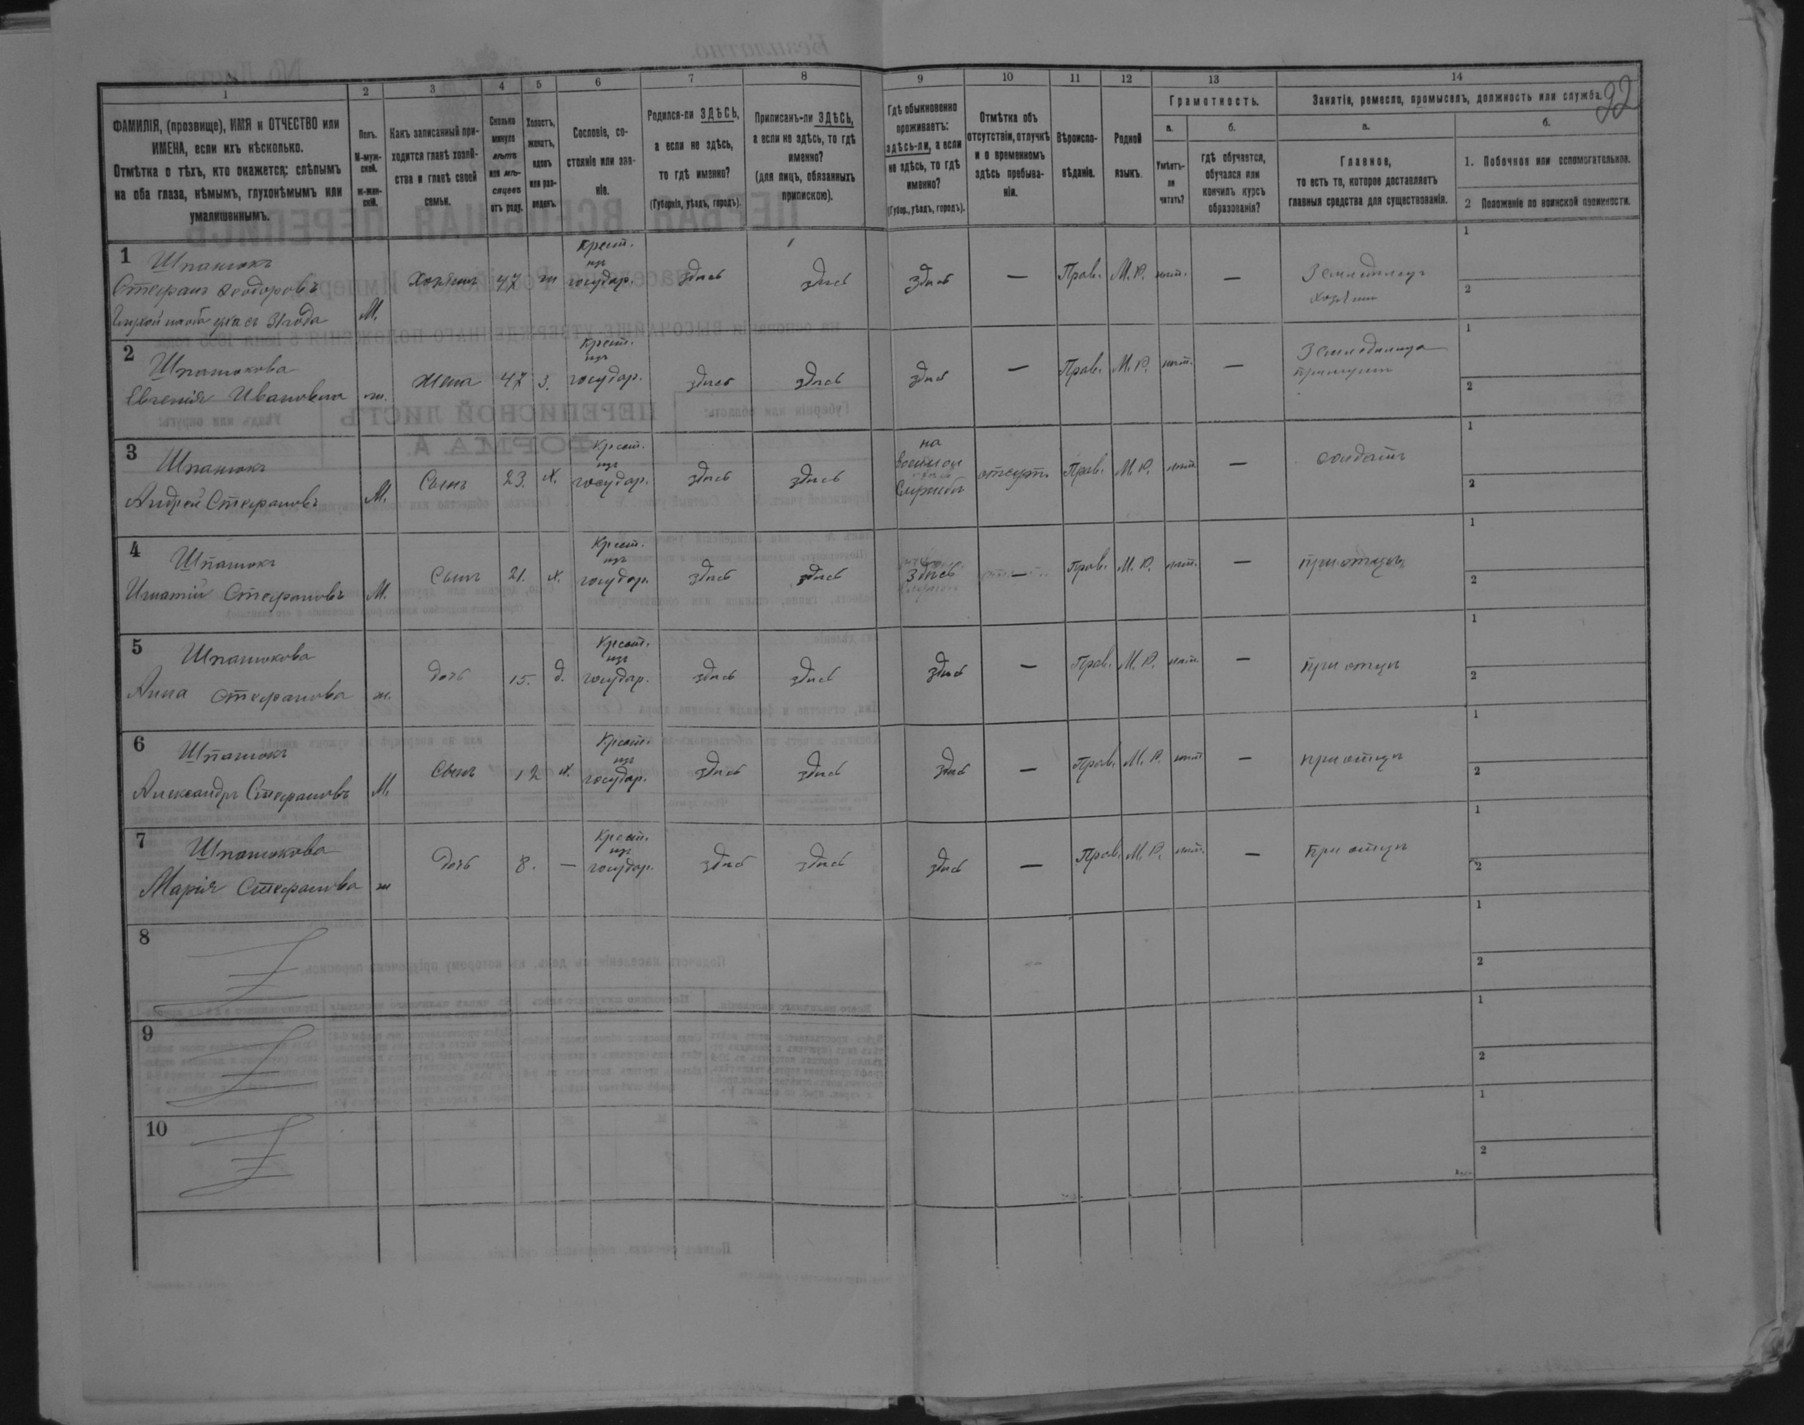 22
1 2 3 4 5 6 7 8 9 10 11 12 13 14
ФАМИЛІЯ, (прозвище), ИМЯ и ОТЧЕСТВО или
ИМЕНА, если ихъ нѣсколько.
Отмѣтка о тѣхъ, кто окажется: слѣпымъ
на оба глаза, нѣмымъ, глухонѣмымъ или
умалишеннымъ.
Полъ.
М-муж-
ской.
ж-жен-
скій.
Какъ записанный при-
ходится главѣ хозяй-
ства и главѣ своей
семьи.
Сколько
минуло
лѣтъ
или мѣ-
сяцевъ
отъ роду.
Холостъ,
женатъ,
вдовъ
или раз-
веденъ.
Сословіе, со-
стояніе или зва-
ніе.
Родился-ли ЗДѢСЬ,
а если не здѣсь,
то гдѣ именно?
(Губернія, уѣздъ, городъ).
Приписанъ-ли ЗДѢСЬ,
а если не здѣсь, то гдѣ
именно?
(для лицъ, обязанныхъ
припискою).
Гдѣ обыкновенно
проживаетъ:
здѣсь-ли, а если
не здѣсь, то гдѣ
именно?
(Губер., уѣздъ, городъ).
Отмѣтка объ
отсутствіи, отлучкѣ
и о временномъ
здѣсь пребыва-
ніи.
Вѣроиспо-
вѣданіе.
Родной
языкъ.
Грамотность.
а.
Умѣетъ-
ли
читать?
б.
гдѣ обучается,
обучался или
кончилъ курсъ
образованія?
Занятіе, ремесло, промыселъ, должность или служба.
а.
Главное,
то есть то, которое доставляетъ
главныя средства для существованія.
б.
1. Побочное или вспомогательное.
2 Положеніе по воинской повинности.
1 Шпанюкъ
Стефанъ Ѳеодоровъ
М. Хозяинъ 47 ж Крест. изъ государ. здѣсь здѣсь здѣсь — Прав. М. Р. нѣт. — Земледѣлецъ хозяинъ
2 Шпанюкова
Евгенія Ивановна ж. жена 47 з. Крест. изъ государ. здѣсь здѣсь здѣсь — Прав. М. Р. нѣт. — Земледѣлица
3 Шпанюкъ
Андрей Стефановъ М. Сынъ 23 х. Крест. изъ государ. здѣсь здѣсь на службѣ отсутт. Прав. М. Р. нѣт. — солдатъ
4 Шпанюкъ
Игнатій Стефановъ М. Сынъ 21. х. Крест. изъ государ. здѣсь здѣсь здѣсь — Прав. М. Р. нѣт. — при отцѣ
5 Шпанюкова
Анна Стефанова ж. дочь 15. д. Крест. изъ государ. здѣсь здѣсь здѣсь — Прав. М. Р. нѣт. — при отцѣ
6 Шпанюкъ
Александръ Стефановъ М. Сынъ 12 х. Крест. изъ государ. здѣсь здѣсь здѣсь — Прав. М. Р. нѣт — при отцѣ
7 Шпанюкова
Марія Стефанова ж дочь 8. — Крест. изъ государ. здѣсь здѣсь здѣсь — Прав. М. Р. нѣт. — при отцѣ
8
9
10